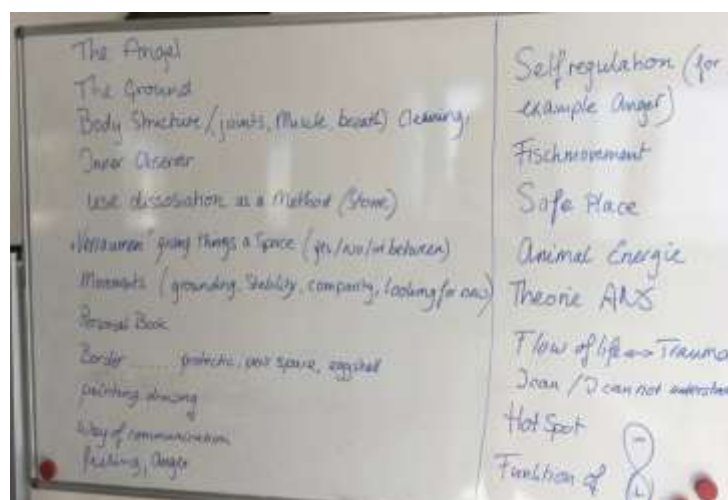 The Angel
The Ground
Body Structure (joints, Muscle, breath) Cleaning,
Inner Observer
use dissosiation as a Method (Stone)
giving things a Space (yes/no/in between)
Moments (grounding, Stability, company, looking for new)
Personal Book
Border ...... protectic, own space, eggshell
painting drawing
Way of communication
feeling, Anger
Selfregulation (for
example Anger)
Fischmovement
Safe Place
Animal Energie
Theorie ANS
Flow of life Trauma
I can / I can not understand
Hot Spot
Funktion of